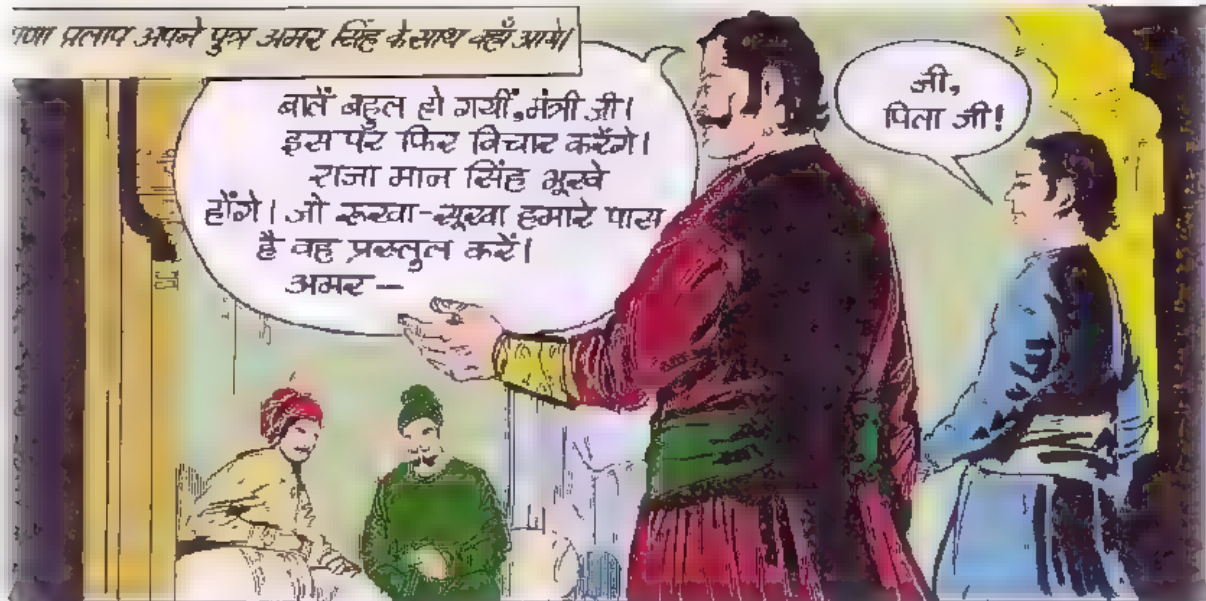 राणा प्रताप अपने पुत्र अमर सिंह के साथ वहाँ आये।
बातें बहुत हो गयीं, मंत्री जी।
इस पर फिर विचार करेंगे।
राजा मान सिंह भूखे
होंगे। जो रूखा-सूखा हमारे पास
है वह प्रस्तुत करें।
अमर —
जी,
पिता जी!